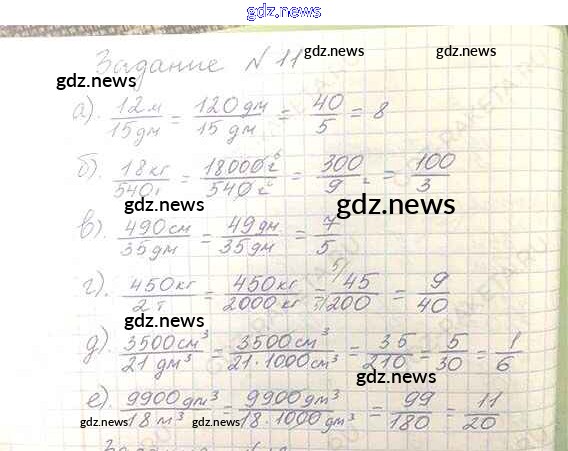 gdz.news
Задание N 11 gdz.news
gdz.news gdz.news
а). 12м/15дм = 120дм/15дм = 40/5 = 8
gdz.news gdz.news
б). 18кг/540г = 18000г/540г = 300/9 = 100/3
gdz.news gdz.news
в). 490см/35дм = 49дм/35дм = 7/5
gdz.news
г). 450кг/2т = 450кг/2000кг = 45/200 = 9/40
gdz.news
д). 3500см³/21дм³ = 3500см³/21·1000см³ = 35/210 = 5/30 = 1/6
gdz.news
е). 9900дм³/18м³ = 9900дм³/18·1000дм³ = 99/180 = 11/20
gdz.news gdz.news